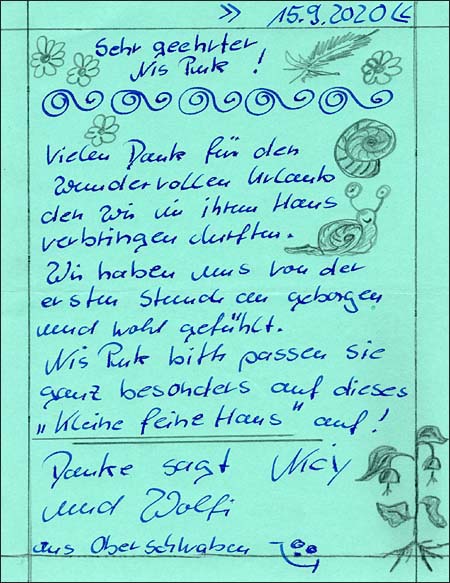 » 15.9.2020 «
Sehr geehrter
Nis Puk !
Vielen Dank für den
Wundervollen Urlaub
den Wir in ihrem Haus
verbringen durften.
Wir haben uns von der
ersten Stunde an geborgen
und wohl gefühlt.
Nis Puk bitte passen sie
ganz besonders auf dieses
„Kleine feine Haus" auf!
Danke sagt
und Wolfi
aus Oberschwaben